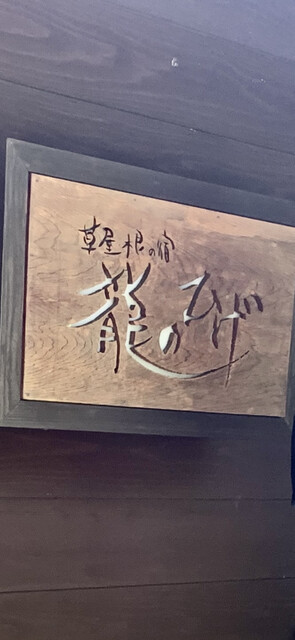 草屋根の宿
龍のひげ